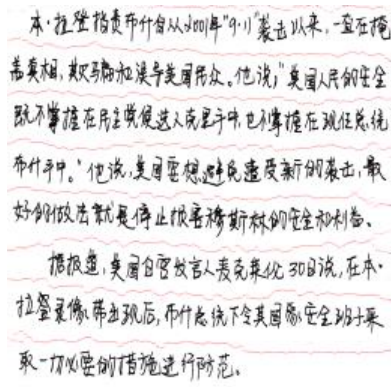 本·拉登指责布什自从2001年“9·11”袭击以来,一直在掩
盖真相,欺骗和误导美国民众。他说,“美国人民的安全
既不掌握在民主党候选人克里手中,也不掌握在现任总统
布什手中。”他说,美国要想避免遭受新的袭击,最
好的做法就是停止损害穆斯林的安全和利益。
据报道,美国白宫发言人麦克莱伦30日说,在本·
拉登录像带出现后,布什总统下令美国国家安全班子采
取一切必要的措施进行防范。